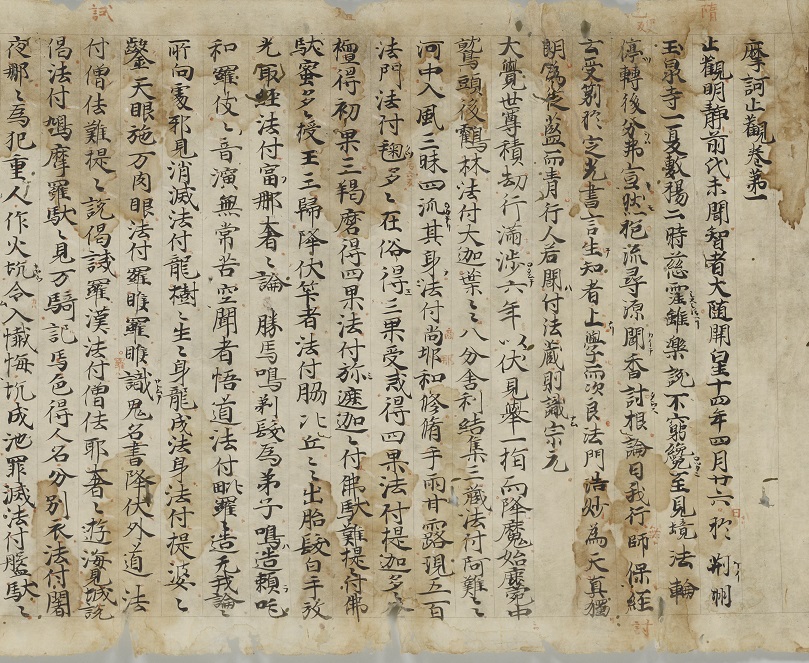 摩訶止觀卷第一
止觀明靜前代未聞智者大隨開皇十四年四月廿六日於荊州
玉泉寺一夏敷揚二時慈霔雖樂說不窮纔至見境法輪
停轉後分弗宣然挹流尋源聞香討根論曰我行師保經
云受莂於定光書言生知者上學而次良法門浩妙為天真獨
朗為從藍而青行人若聞付法藏則識宗元
大覺世尊積劫行滿涉六年以伏見舉一指而降魔始鹿中
鷲頭後鶴林法付大迦葉〻〻八分舍利結集三藏法付阿難〻〻
河中入風三昧四派其身法付商那和修〻手雨甘露現五百
法門法付毱多〻〻在俗得三果受戒得四果法付提迦多〻〻
檀得初果三羯磨得四果法付弥遮迦〻付佛馱難提〻付佛
馱蜜多〻授王三歸降伏算者法付脇比丘〻〻出胎髮白手放
光取經法付富那奢〻論勝馬鳴剃髮為弟子鳴造賴吒
和羅伎〻音演無常苦空聞者悟道法付毗羅〻造无我論〻
所向處邪見消滅法付龍樹〻生〻身龍成法身法付提婆〻
鑿天眼施万肉眼法付羅睺羅睺識鬼名書降伏外道法
付僧佉難提〻說偈試羅漢法付僧佉耶奢〻遊海見城說
偈法付鳩摩羅馱〻見万騎記馬色得人名分別衣法付闍
夜那〻為犯重人作火坑令入懺悔坑成池罪滅法付盤馱〻